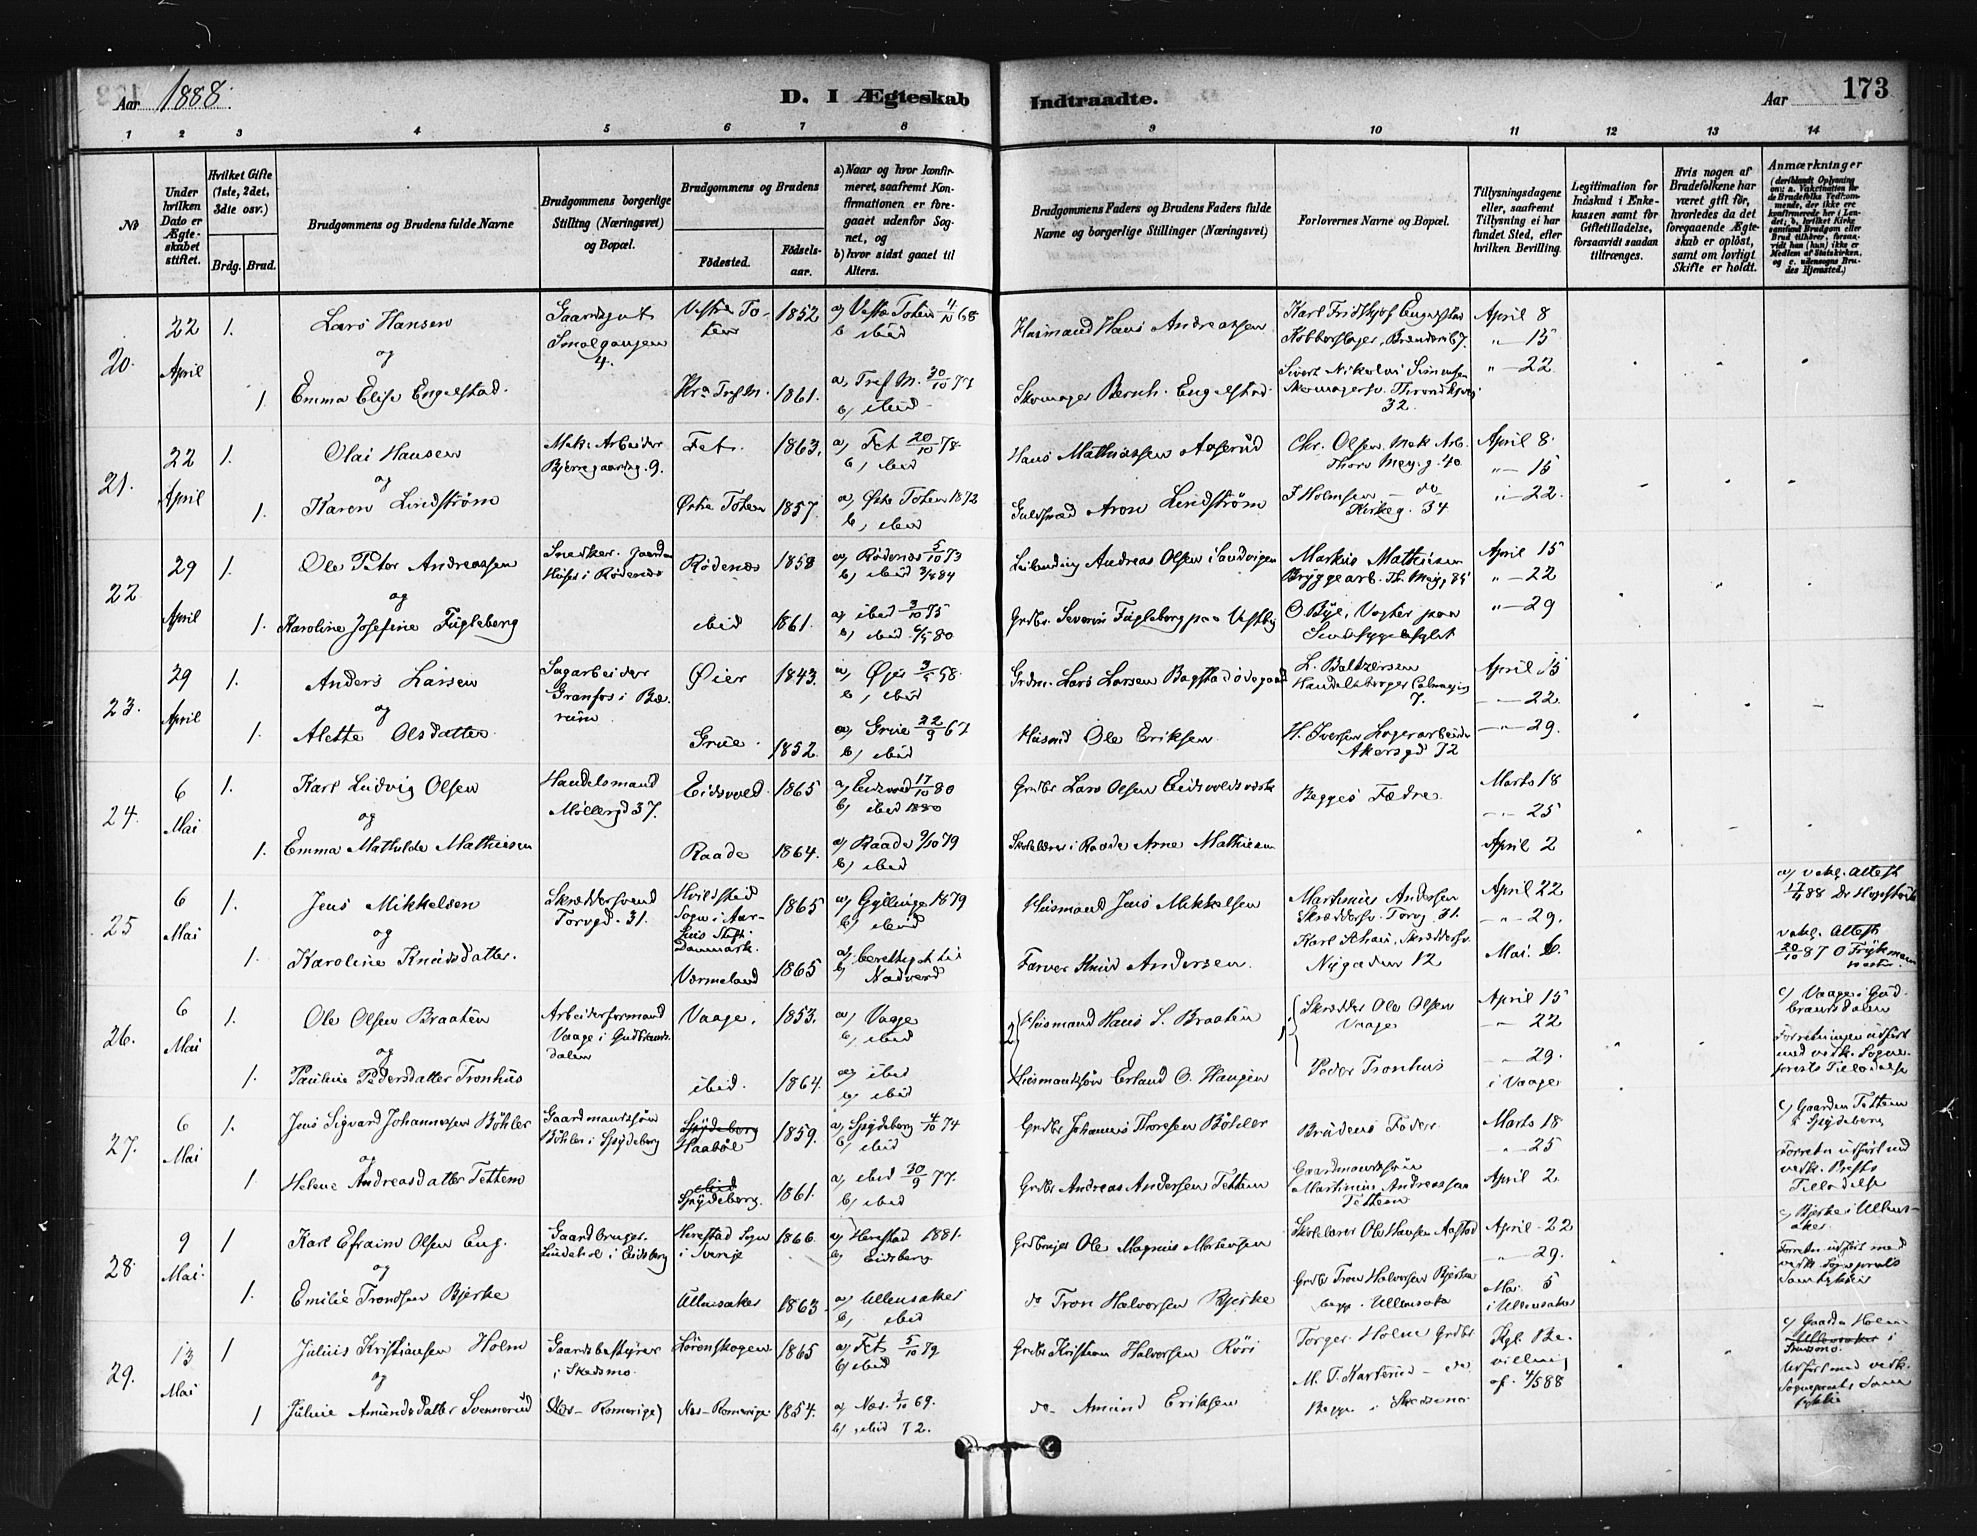 Aar 1888.
D. I Ægteskab
Indtraadte.
Aar
173
1 2 3 4 5 6 7 8 9 10 11 12 13 14
No
Under hvilken Dato er Ægteskabet stiftet.
Hvilket Gifte (1ste, 2det, 3die osv.)
Brdg. Brud.
Brudgommens og Brudens fulde Navne
Brudgommens borgerlige Stilling (Næringsvei) og Bopæl.
Brudgommens og Brudens
Födested.
Födselsaar.
a) Naar og hvor konfirmeret, saafremt Konfirmationen er foregaaet udenfor Sognet, og
b) hvor sidst gaaet til Alters.
Brudgommens Faders og Brudens Faders fulde Navne og borgerlige Stillinger (Næringsvei)
Forlovernes Navne og Bopæl.
Tillysningsdagene eller, saafremt Tillysning ei har fundet Sted, efter hvilken Bevilling.
Legitimation for Indskud i Enkekassen samt for Giftetilladelse, forsaavidt saadan tiltrænges.
Hvis nogen af Brudefolkene har været gift för, hvorledes da det foregaaende Ægteskab er oplöst, samt om lovligt Skifte er holdt.
Anmærkninger
20. 22 April 1. Lars Hansen
og
1. Emma Elise Engelstad.
Gaardsgut
Smalgangen
4.
Vestre Toten 1852 a) Vestre Toten 4/10 68
b) ibid
Kra Tref. M. 1861. a) Tref M. 30/10 77
b) ibid
Husmand Hans Andreassen
Skomager Bernh. Engelstad
Karl Fridthjof Engelstad
Kobberslager, Brenneri 67.
Sivert Nikolai Simensen
Skomagersv. Throndhjvei
32.
April 8
" 15
" 22
21. 22 April 1. Olai Hansen
og
1. Karen Lindström
Mek. Arbeider
Bjerregaardsg. 9.
Fet. 1863. a) Fet 20/10 78
b) ibid
Østre Toten 1857. a) Østre Toten 1872
b) ibid
Hans Mathiassen Aaserud
Guldsmed Aron Lindström
Chr. Olsen Mek Arb.
Thorv Meyg. 40
J Holmsen do
Kirkeg. 34
April 8
" 15
" 22.
22 29 April 1. Ole Peter Andreassen
og
1. Karoline Josefine Fugleberg
Snedker
i Rödenæs
Rödenæs 1858 a) Rödenæs 5/10 73
b) ibid 3/8 84
ibid 1861. a) ibid 3/10 75
b) ibid 6/5 80
Leilending Andreas Olsen i Sandvigen
Grdbr. Severin Fugleberg paa Vestby
Markus Mathisen
Bryggearb. Th. Meyg 85
O. Bye, Vogter paa
Sindssygeasylet
April 15
" 22
" 29
23. 29 April 1. Anders Larsen
og
1. Alette Olsdatter
Sagarbeider
Granfos i Bærum
Øier 1843. a) Øier 58
b) ibid
Grue. 1852. a) Grue 22/9 67
b) ibid
Grdm. Lars Larsen Bagstadødegaard
Husmd Ole Eriksen
L. Baltzersen
Handelsborger
7.
H. Iversen Lagerarbeider
Akersgd 72
April 15
" 22.
" 29.
24. 6 Mai 1. Karl Ludvig Olsen
og
1. Emma Mathilde Mathiesen
Handelsmand
Möllergd 37.
Eidsvold. 1865 a) Eidsvold 17/10 80
b) ibid 1880
Raade 1864. a) Raade 9/10 79
b) ibid
Grdbr Lars Olsen Eidsvoldsværk
Skolelærer i Raade Arne Mathiesen
Begges Fædre.
Marts 18
" 25
April 2
25 6 Mai 1. Jens Mikkelsen
og
1. Karoline Knudsdatter.
Skræddersvend
Torvgd. 31.
Hvilsted
Sogn i Aarhuus Stift
Danmark. 1865 a) Gyllinge 1879
b) ibid
Vermeland 1865 a) berettiget til
b) Nadverd
Husmand Jens Mikkelsen
Farver Knud Andersen.
Martinius Andersen
Skræddersv. Torvg. 31.
Karl Schau, Skræddersv.
Nygaden 12
April 22
" 29.
Mai. 6.
a) vakc. Attest
17/4 88
vakc. Attest
20/10 87
26. 6 Mai 1. Ole Olsen Braaten
og
1. Pauline Pedersdatter Tronhus
Arbeidsformand
Vaage i Gudbrandsdalen
Vaage. 1853. a) Vaage
b) ibid
ibid. 1864. a) ibid
b) ibid
Husmand Hans S. Braaten
Husmandssön Erland O. Haugen
Skrædder Ole Olsen
Vaage
Peder Tronhus
April 15
" 22
" 29.
i Vaage
c) Vaage i Gudbrandsdalen
Forretningen udfört
med vedk. Sogneprests Tilladelse
27. 6 Mai 1. Jens Sigvard Johannessen Böhler
og
1. Helene Andreasdatter Tettem
Gaardmandssön
Böhler i Spydeberg
Spydeberg
Haaböl 1859. a) Spydeberg 4/10 74
b) ibid
ibid
Spydeberg. 1861. a) ibid 30/9 77.
b) ibid
Grdbr Johannes Thoresen Böhler
Grdbr Andreas Andersen Tettem
Brudens Fader
Gaardmandssön
Martinius Andreassen
Tettem
Marts 18
" 25
April 2
c) Gaarden Tettem
i Spydeberg
Forretn udfört med
vedk. Prests
Tilladelse
28. 9 Mai. 1 Karl Efraim Olsen Eng.
og
1. Emilie Trondsen Bjerke
Gaardbruger
Lindehol i Eidsberg
Herestad Sogn
i Sverige 1866. a) Herestad 1881.
b) Eidsberg
Ullensaker 1863 a) Ullensaker
b) ibid
Grdbruger Ole Magnus Mortensen
do Tron Halvorsen Bjerke
Skolelærer Ole Hansen Aastad
Grdbr Tron Halvorsen Bjerke
begge Ullensaker
April 22
" 29.
Mai 5
i Ullensaker
c) Bjerke i Ullensaker.
Forretn udfört med
vedk. Sogneprests
Samtykke
29. 13 Mai 1 Julius Kristiansen Holm
og
1 Juliie Amundsdatter Svennerud
Gaardsbestyrer
i Skedsmo.
(Næs - Romerige)
Lörenskogen 1865 a) Fet 5/10 79
b) ibid
Næs - Romerige 1854. a) Næs. 3/10 69.
b) ibid 72.
Grdbr Kristian Halvorsen Röri
do Amund Eriksen
Torger Holm Grdbr
do
Begge i Skedsmo
Kgl. Bevilling
af 4/5 88
c) Gaarden Holm
Ullensaker i
Skedsmo.
Udfört med vedk.
Sogneprests Samtykke